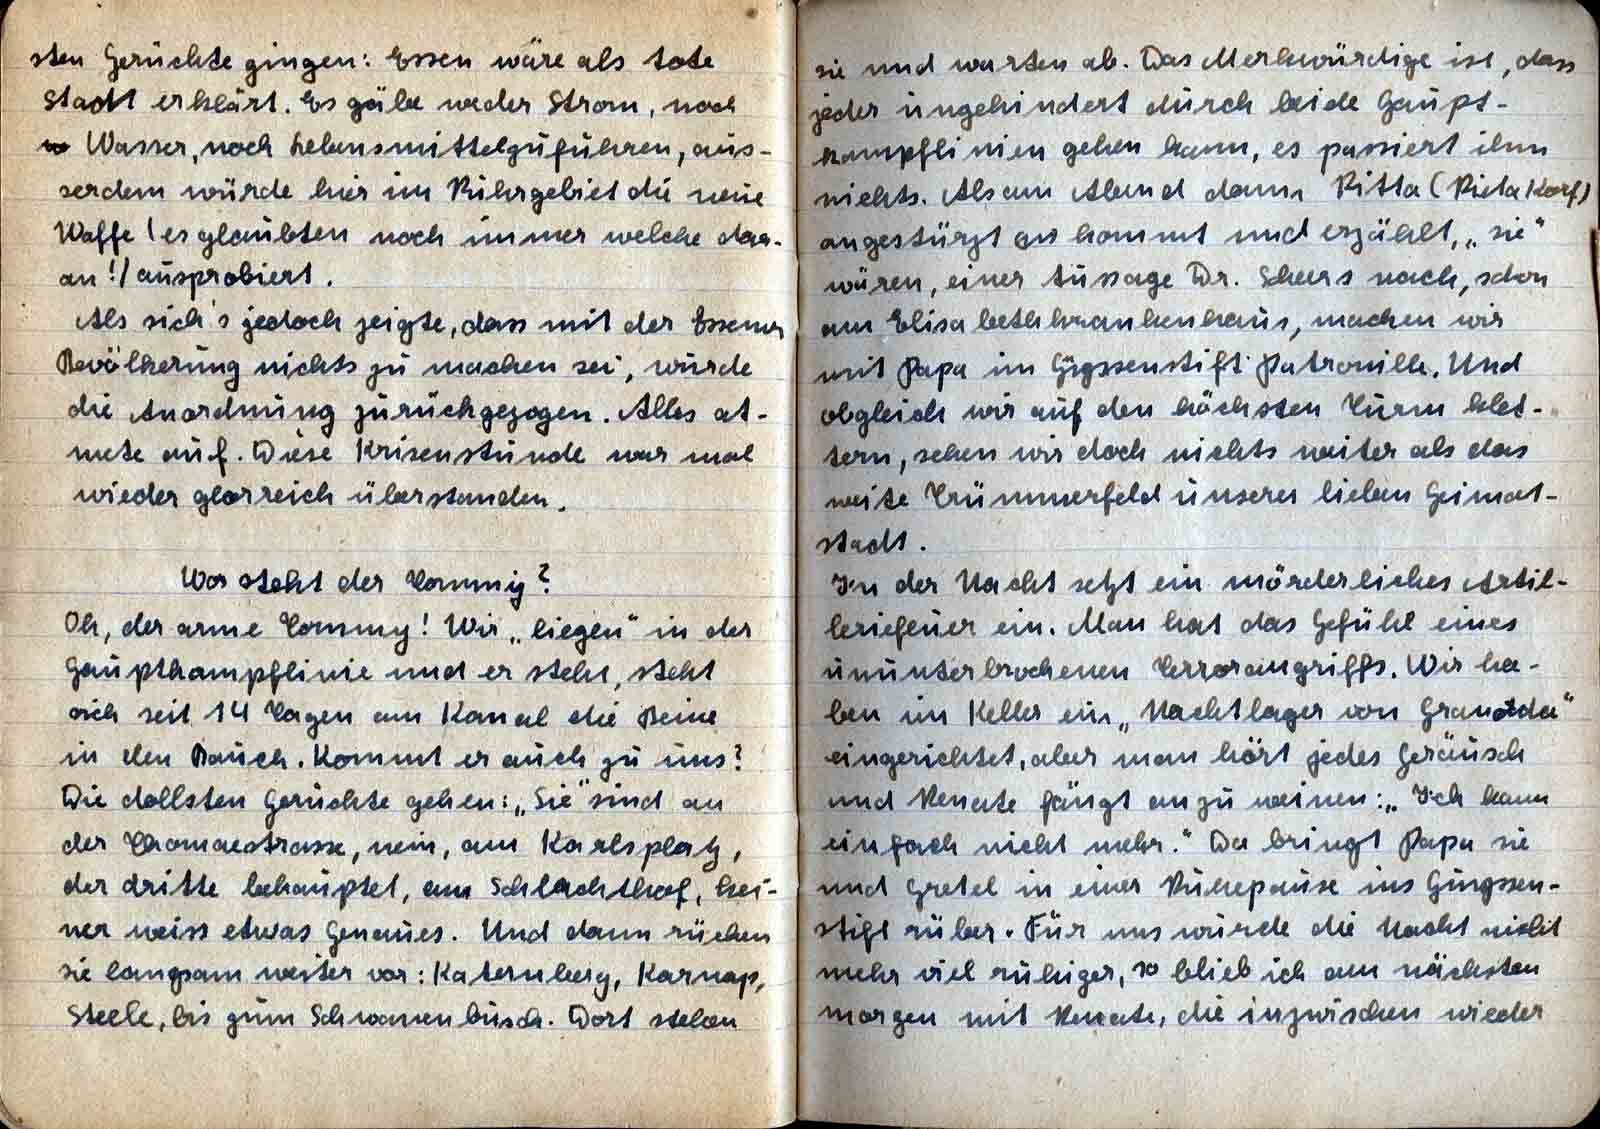 sten Gerüchte gingen: Essen wäre als tote
Stadt erklärt. Es gäbe weder Strom, noch
Wasser, noch Lebensmittelzufuhren, aus-
serdem würde hier im Ruhrgebiet die neue
Waffe (es glaubten noch immer welche dar-
an!) ausprobiert.
Als sich's jedoch zeigte, dass mit der Essener
Bevölkerung nichts zu machen sei, wurde
die Anordnung zurückgezogen. Alles at-
mete auf. Diese Krisenstunde war mal
wieder glorreich überstanden.
Wo steht der Tommy?
Oh, der arme Tommy! Wir „liegen" in der
Hauptkampflinie und er steht, steht
sich seit 14 Tagen am Kanal die Beine
in den Bauch. Kommt er auch zu uns?
Die dollsten Gerüchte gehen: „Sie" sind an
der Thomaestrasse, nein, am Karlsplatz,
der dritte behauptet, am Schlachthof, kei-
ner weiss etwas Genaues. Und dann rücken
sie langsam weiter vor: Katernberg, Karnap,
Steele, bis zum Schwanenbusch. Dort stehen
sie und warten ab. Das Merkwürdige ist, dass
jeder ungehindert durch beide Haupt-
kampflinien gehen kann, es passiert ihm
nichts. Als am Abend dann Ritta (Rieta Korf)
angestürzt kommt und erzählt, „sie"
wären, einer Aussage Dr. Scheers nach, schon
am Elisabethkrankenhaus, machen wir
mit Papa im Huyssenstift Patrouille. Und
obgleich wir auf den höchsten Turm klet-
tern, sehen wir doch nichts weiter als das
weite Trümmerfeld unserer lieben Heimat-
stadt.
In der Nacht setzt ein mörderliches Artil-
leriefeuer ein. Man hat das Gefühl eines
ununterbrochenen Terrorangriffs. Wir ha-
ben im Keller ein „Nachtlager von Granada"
eingerichtet, aber man hört jedes Geräusch
und Renate fängt an zu weinen: „Ich kann
einfach nicht mehr." Da bringt Papa sie
und Gretel in einer Ruhepause ins Huyssen-
stift rüber. Für uns wurde die Nacht nicht
mehr viel ruhiger, so blieb ich am nächsten
morgen mit Renate, die inzwischen wieder